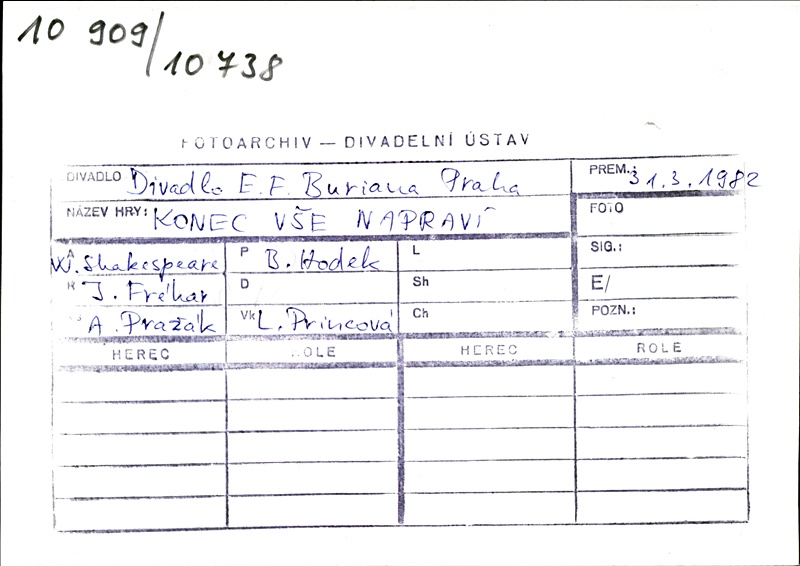 10 909/
10 738
FOTOARCHIV — DIVADELNÍ ÚSTAV
DIVADLO Divadlo E. F. Buriana Praha
PREM.: 31.3.1982
NÁZEV HRY: KONEC VŠE NAPRAVÍ
FOTO
A W. Shakespeare P B. Hodek L SIG.:
R J. Fréhar D Sh E/
A. Pražák Vk L. Princová Ch POZN.:
HEREC ROLE HEREC ROLE